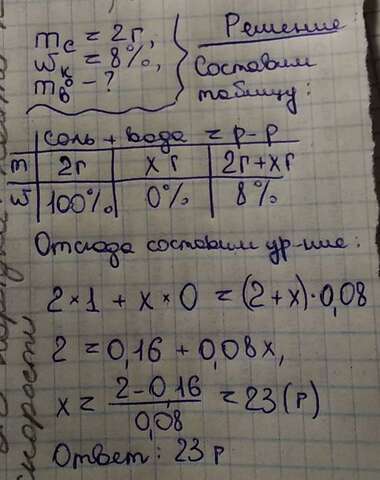 mс = 2г,
wк = 8%,
mв - ?
Решение
Составим
таблицу:
соль + вода = р-р
m 2г х г 2г+хг
w 100% 0% 8%
Отсюда составим ур-ние:
2×1 + х×0 = (2+х)·0,08
2 = 0,16 + 0,08х,
х = 2-0,16 / 0,08 = 23 (г)
Ответ: 23 г
скорости